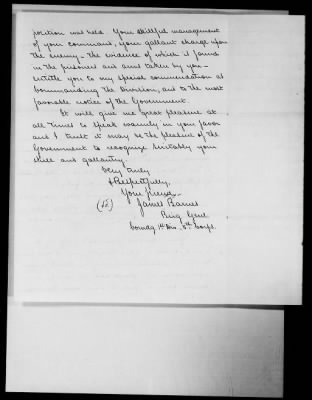 position was held. Your skillful management
of your command, your gallant charge upon
the enemy - the evidence of which is found
in the prisoners and arms taken by you -
entitle you to my special commendation as
Commanding the Division, and to the most
favorable notice of the Government.
It will give me great pleasure at
all times to speak warmly in your favor
and I trust it may be the pleasure of the
Government to recognize suitably your
skill and gallantry.
Very truly
& Respectfully,
Your friend -
James Barnes
Brig Genl
Comdg 1st Div. 5th Corps.